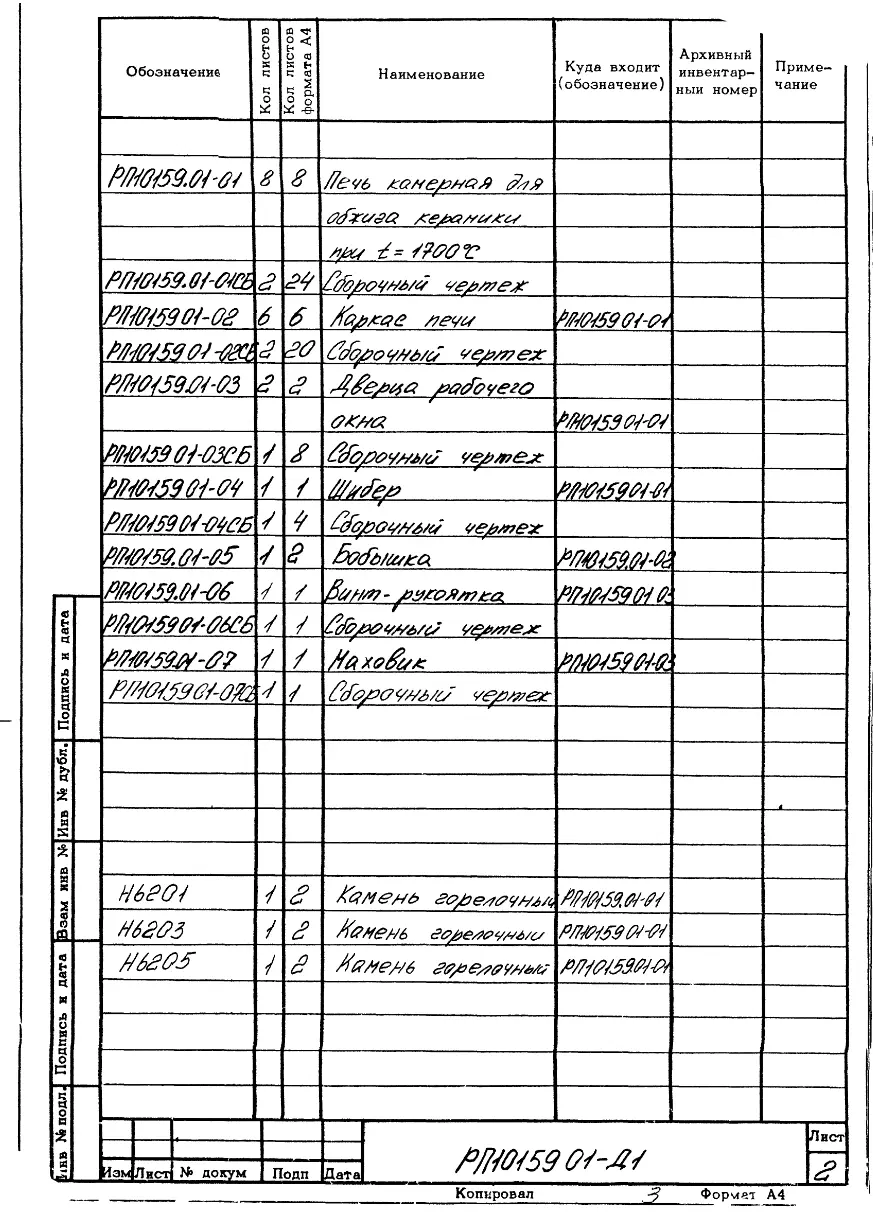 Обозначение Кол листов Кол листов формата А4 Наименование Куда входит (обозначение) Архивный инвентарныи номер Примечание
РП10159.01-01 8 8 Печь камерная для
обжига керамики
при t = 1700°С
РП10159.01-01СБ 2 24 Сборочный чертеж
РП10159 01-02 6 6 Каркас печи РП10159 01-01
РП10159 01-02СБ 2 20 Сборочный чертеж
РП10159.01-03 2 2 Дверца рабочего
окна РП10159 01-01
РП10159 01-03СБ 1 8 Сборочный чертеж
РП10159 01-04 1 1 Шибер РП10159 01-01
РП10159 01-04СБ 1 4 Сборочный чертеж
РП10159.01-05 1 2 Бобышка РП10159.01-02
РП10159.01-06 1 1 Винт-рукоятка РП10159 01 03
РП10159 01-06СБ 1 1 Сборочный чертеж
РП10159.01-07 1 1 Маховик РП10159 01-03
РП10159 01-07СБ 1 1 Сборочный чертеж
Н6201 1 2 Камень горелочный РП10159.01-01
Н6203 1 2 Камень горелочный РП10159 01-01
Н6205 1 2 Камень горелочный РП10159.01-01
Инв № подл. Подпись и дата Взам инв № Инв № дубл. Подпись и дата
Изм Лист № докум Подп Дата
РП10159 01-Д1
Лист
2
Копировал 3 Формат А4